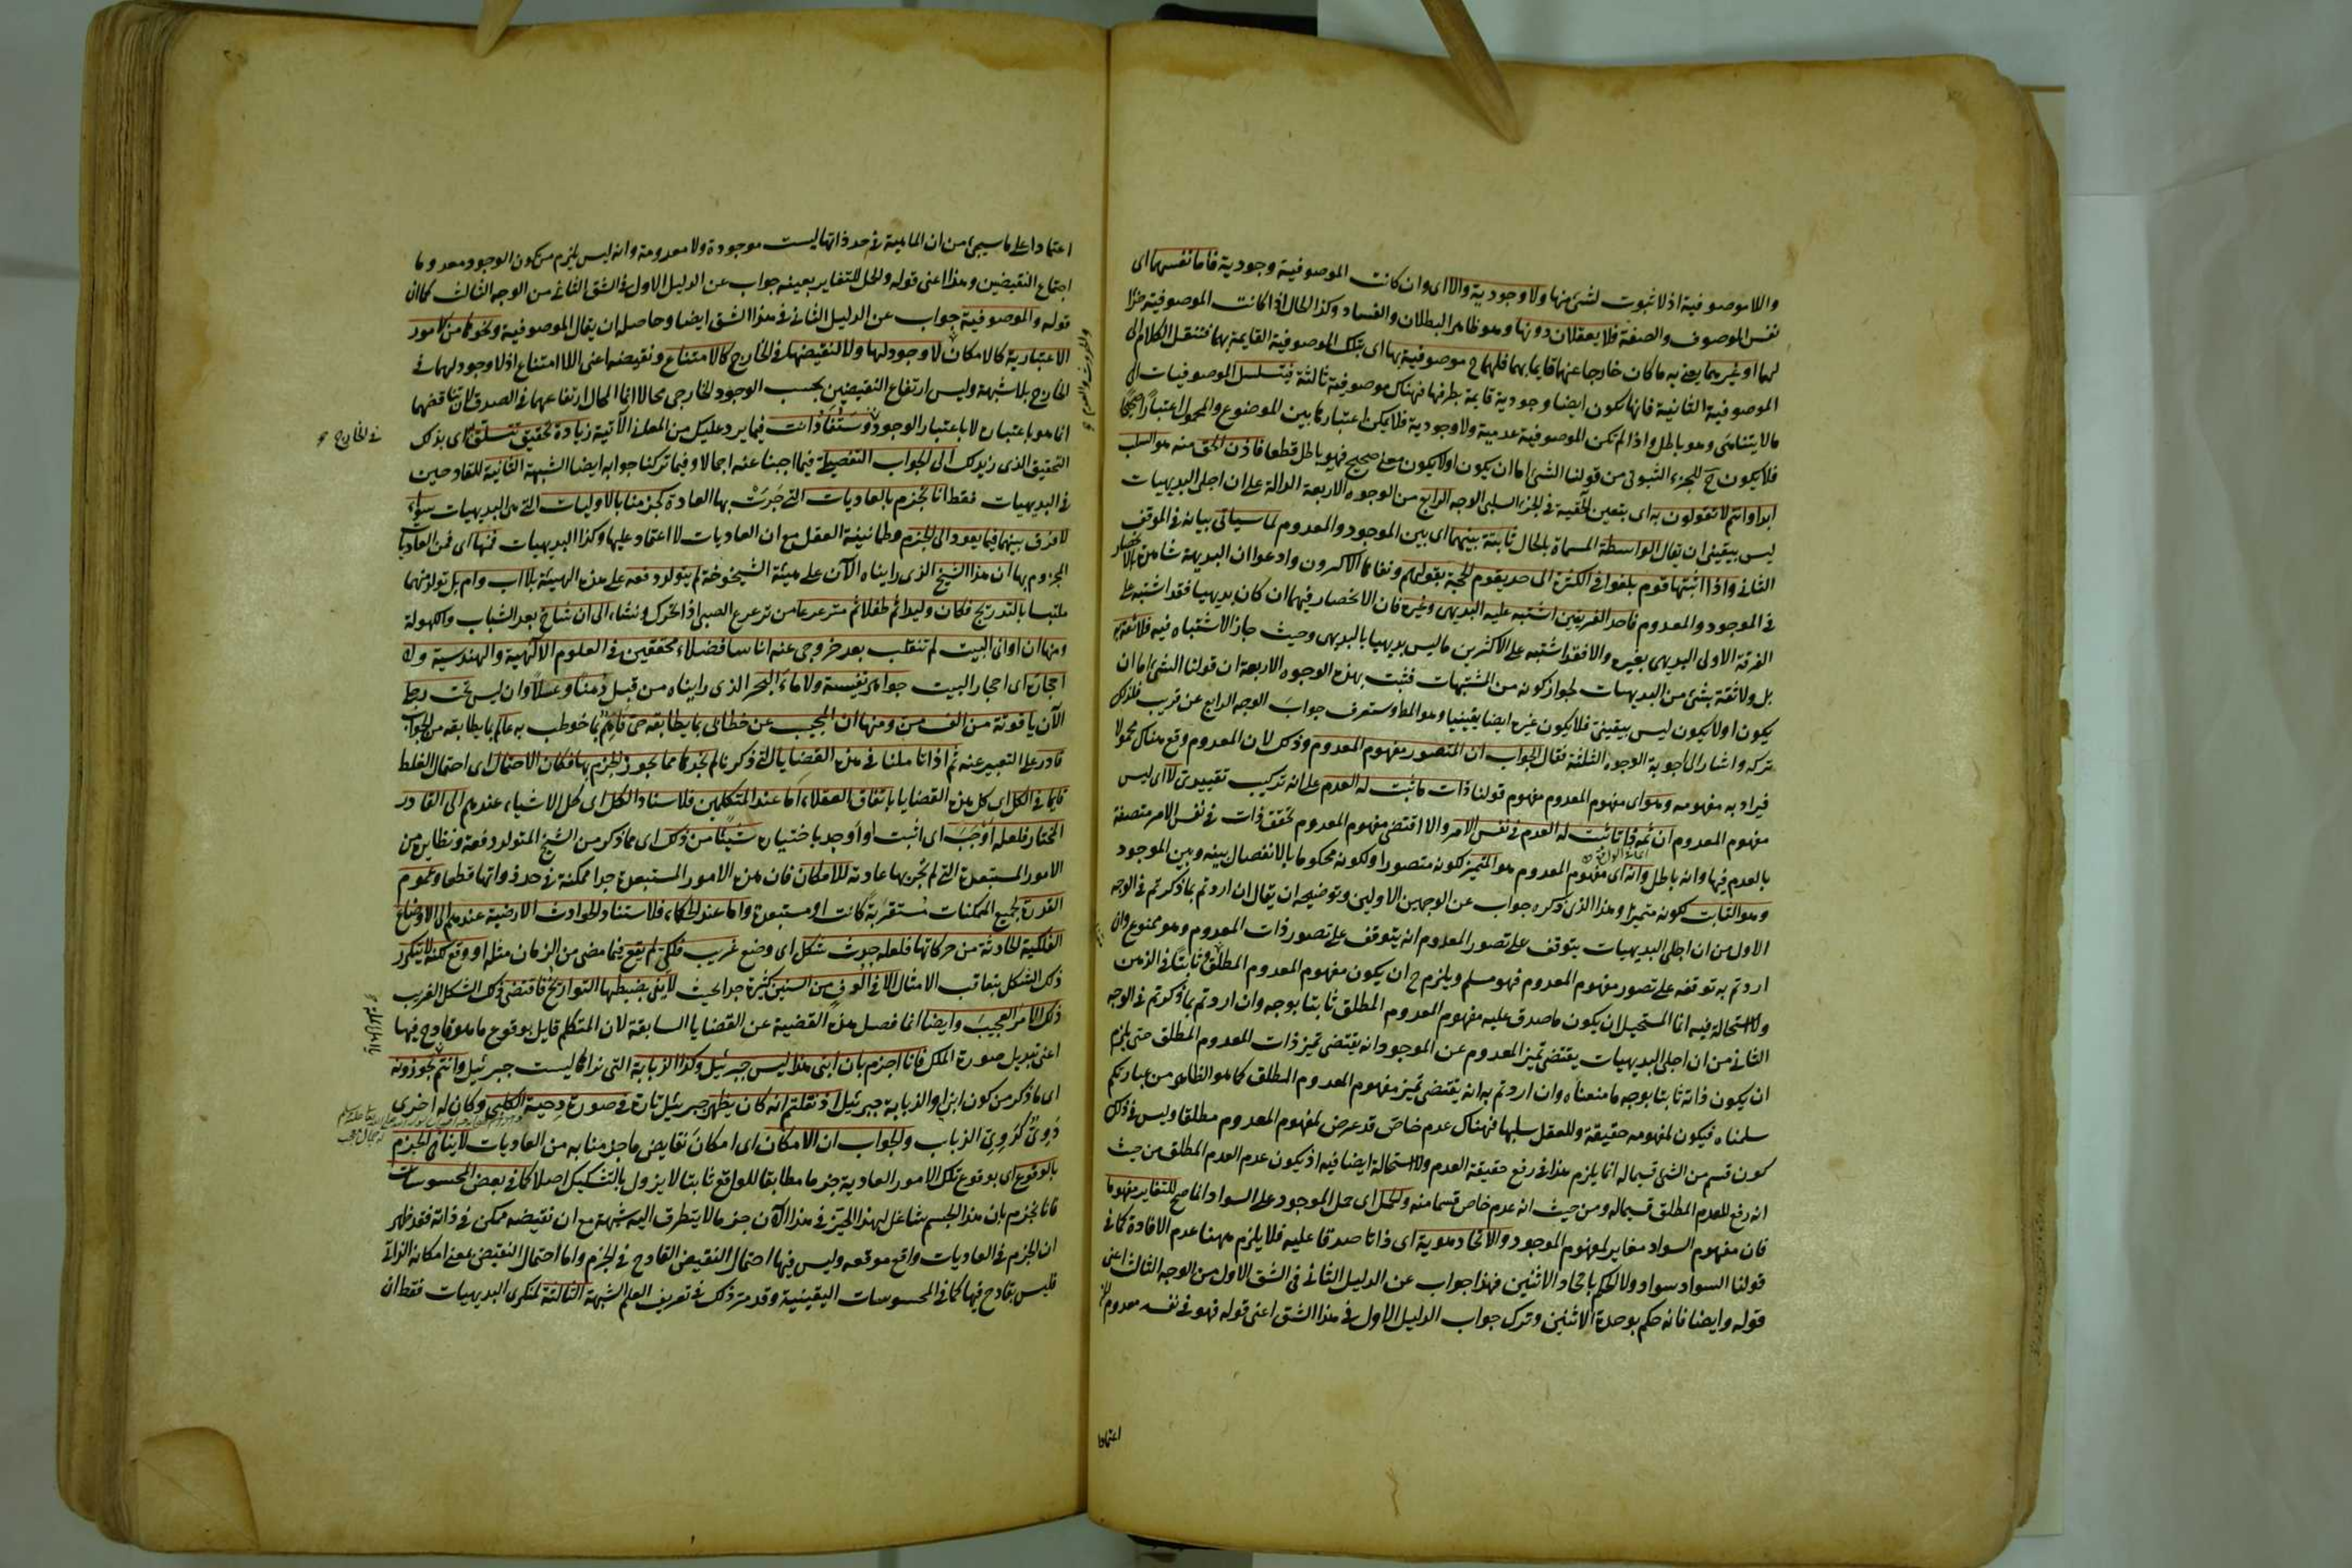 واللاموصوفية اذ لا ثبوت لشئ منها ولا وجودية والا اى وان كانت الموصوفية وجودية فاما نفسهما اى
نفس الموصوف والصفة فلا يعقلان دونها وهو ظاهر البطلان والفساد وكذا الحال اذا كانت الموصوفية جزأ
لهما او غيرهما يعنى به ما كان خارجا عنهما قايما بهما فلهما ح موصوفية بها اى بتلك الموصوفية القايمة بهما فننقل الكلام الى
الموصوفية الثانية فانها تكون ايضا وجودية قايمة بطرفها فهناك موصوفية ثالثة فيتسلسل الموصوفيات الى
مالا يتناهى وهو باطل واذا لم تكن الموصوفية عدمية ولا وجودية فلا يمكن اعتبارها بين الموضوع والمحمول اعتبارا صحيحا
فلا يكون ح للجزء الثبوتى من قولنا الشئ اما ان يكون او لا يكون معنى صحيح فهو باطل قطعا فاذن الحق منه هو السلب
ابدا وانتم لا تقولون به اى بتعين الحقية فى الجزء السلبى الوجه الرابع من الوجوه الاربعة الدالة على ان اجلى البديهيات
ليس بيقينى ان يقال الواسطة المسماة بالحال ثابتة بينهما اى بين الموجود والمعدوم لما سياتى بيانه فى الموقف
الثانى واذا اثبتها قوم بلغوا فى الكثرة الى حد يقوم الحجة بقولهم ونفاها الاكثرون وادعوا ان البديهة شاهدة بالانحصار
فى الموجود والمعدوم فاحد الفريقين اشتبه عليه البديهى وغيره فان الانحصار فيهما ان كان بديهيا فقد اشتبه على
الفرقة الاولى البديهى بغيره والا فقد اشتبه على الاكثرين ماليس بديهيا بالبديهى وحيث جاز الاشتباه فيه فلا ثقة به
بل ولا ثقة بشئ من البديهيات لجواز كونه من المشتبهات فثبت بهذه الوجوه الاربعة ان قولنا الشئ اما ان
يكون او لا يكون ليس بيقينى فلا يكون غيره ايضا يقينيا وهو المط وستعرف جواب الوجه الرابع عن قريب فلذلك
تركه واشار الى اجوبة الوجوه الثلثة فقال الجواب ان المتصور مفهوم المعدوم وذلك لان المعدوم وقع هناك محمولا
فيراد به مفهومه وهو اى مفهوم المعدوم مفهوم قولنا ذات ما ثبت له العدم على انه تركيب تقييدى لا اى ليس
مفهوم المعدوم ان ثمه ذاتا ثبت له العدم فى نفس الامر والا اقتضى مفهوم المعدوم تحقق ذات فى نفس الامر متصفة
بالعدم فيها وانه باطل وانه اى مفهوم المعدوم هو المتميز لكونه متصورا ولكونه محكوما بالانفصال بينه وبين الموجود
وهو الثابت لكونه متميزا وهذا الذى ذكره جواب عن الوجهين الاولين وتوضيحه ان يقال ان اردتم بما ذكرتم فى الوجه
الاول من ان اجلى البديهيات يتوقف على تصور المعدوم انه يتوقف على تصور ذات المعدوم وهو ممنوع وان
اردتم به توقفه على تصور مفهوم المعدوم فهو مسلم ويلزم ح ان يكون مفهوم المعدوم المطلق ثابتا فى الذهن
ولا استحالة فيه انما المستحيل ان يكون ما صدق عليه مفهوم المعدوم المطلق ثابتا بوجه وان اردتم بما ذكرتم فى الوجه
الثانى من ان اجلى البديهيات يقتضى تميز المعدوم عن الموجود انه يقتضى تميز ذات المعدوم المطلق حتى يلزم
ان يكون ذاته ثابتا بوجه ما منعناه وان اردتم به انه يقتضى تميز مفهوم المعدوم المطلق كما هو الظاهر من عبارتكم
سلمناه فيكون لمفهومه حقيقة وللعقل سلبها فهناك عدم خاص قد عرض لمفهوم المعدوم مطلقا وليس فى ذلك
كون قسم من الشئ قسيما له انما يلزم هذا فى رفع حقيقة العدم ولا استحالة ايضا فيه اذ يكون عدم العدم المطلق من حيث
انه رفع للعدم المطلق قسيما له ومن حيث انه عدم خاص قسما منه والحمل اى حمل الموجود على السواد انما صح للتغاير مفهوما
فان مفهوم السواد مغاير لمفهوم الموجود والاتحاد هوية اى ذاتا صدقا عليه فلا يلزم ههنا عدم الافادة كما فى
قولنا السواد سواد ولا الحكم باتحاد الاثنين فهذا جواب عن الدليل الثانى فى الشق الاول من الوجه الثالث اعنى
قوله وايضا فانه حكم بوحدة الاثنين وترك جواب الدليل الاول فى هذا الشق اعنى قوله فهو فى نفسه معدوم
اعتمادا
اعتمادا على ما سيجئ من ان الماهية فى حد ذاتها ليست موجودة ولا معدومة وانه ليس يلزم من كون الوجود معدوما
اجتماع النقيضين وهذا اعنى قوله والحمل للتغاير بعينه جواب عن الدليل الاول فى الشق الثانى من الوجه الثالث كما ان
قوله والموصوفية جواب عن الدليل الثانى فى هذا الشق ايضا وحاصله ان يقال الموصوفية ونحوها من الامور
الاعتبارية كالامكان لا وجود لها ولا لنقيضها فى الخارج كالامتناع ونقيضه اعنى اللا امتناع اذ لا وجود لهما فى
الخارج بلا شبهة وليس ارتفاع النقيضين بحسب الوجود الخارجى محالا انما المحال ارتفاعهما فى الصدق لان تناقضهما
انما هو باعتباره لا باعتبار الوجود وستفاد انت فيما يرد عليك من المعانى الآتية زيادة تحقيق تتسلق به اى بذلك
فى الخارج
التحقيق الذى زيدك الى الجواب التفصيلى فيما اجبنا عنه اجمالا وفيما تركنا جوابه ايضا الشبهة الثانية للقادحين
فى البديهيات فقط انا نجزم بالعاديات التى جرت بها العادة كجزمنا بالاوليات التى هى البديهيات سواء
لا فرق بينهما فيما يعود الى الجزم وطمانينة العقل مع ان العاديات لا اعتماد عليها وكذا البديهيات فمنها اى فمن العاديات
المجزوم بها ان هذا الشيخ الذى رايناه الآن على هيئة الشيخوخة لم يتولد دفعة على هذه الهيئة بلا اب وام بل تولد منهما
ملتبسا بالتدريج فكان وليدا ثم طفلا ثم مترعرعا من ترعرع الصبى اذا تحرك ونشاء الى ان شاخ بعد الشباب والكهولة
ومنها ان اوانى البيت لم تنقلب بعد خروجى عنه اناسا فضلاء محققين فى العلوم الالهية والهندسية ولا
احجاره اى احجار البيت جواهر نفيسة ولا ماء البحر الذى رايناه من قبل دهنا وعسلا وان ليس تحت رجلى
الآن ياقوتة من الف من ومنها ان المجيب عن خطابى بما يطابقه حى فاهم بما خوطب به عالم بما يطابقه من الجواب
قادر على التعبير عنه ثم اذا تاملنا فى هذه القضايا التى ذكرنا لم نجدها مما يجوز الجزم بها فكان الاحتمال اى احتمال الغلط
قايما فى الكل اى كل هذه القضايا باتفاق العقلاء اما عند المتكلمين فلاستناد الكل اى كل الاشياء عندهم الى القادر
المختار فلعله اوجب اى اثبت او اوجد باختياره شيئا من ذلك اى مما ذكر من الشيخ المتولد دفعة ونظايره من
الامور المستبعدة التى لم تجر بها عادته للامكان فان هذه الامور المستبعدة جدا ممكنة فى حد ذواتها قطعا وعموم
القدرة لجميع الممكنات مستقربة كانت او مستبعدة واما عند الحكماء فلاستناد الحوادث الارضية عندهم الى الاوضاع
الفلكية الحادثة من حركاتها فلعله حدث شكل اى وضع غريب فلكى لم يقع فيما مضى من الزمان مثله او وقع لكنه لا يتكرر
ذلك الشكل بتعاقب الامثال الا فى الوف من السنين كثيرة جدا بحيث لا يفى بضبطها التواريخ فاقتضى ذلك الشكل الغريب
ذلك الامر العجيب وايضا انما فصل هذه القضية عن القضايا السابقة لان المتكلم قايل بوقوع ما هو قادح فيها
اعنى تبديل صورة الملك فانا اجزم بان ابنى هذا ليس جبرئيل وكذا الذبابة التى نراها ليست جبرئيل وانتم تجوزونه
اى ما ذكر من كون ابنى او الذبابة جبرئيل اذ نقلتم انه كان يظهر جبرئيل تارة فى صورة دحية الكلبى وكان له اخرى
دوى كدوى الذباب والجواب ان الامكان اى امكان نقايض ما جزمنا به من العاديات لا ينافى الجزم
بالوقوع اى بوقوع تلك الامور العادية جزما مطابقا للواقع ثابتا لا يزول بالتشكيك اصلا كما فى بعض المحسوسات
فانا نجزم بان هذا الجسم شاغل لهذا الحيز فى هذا الآن جزما لا يتطرق اليه شبهة مع ان نقيضه ممكن فى ذاته فقد ظهر
ان الجزم فى العاديات واقع موقعه وليس فيها احتمال النقيض القادح فى الجزم واما احتمال النقيض بمعنى امكانه الذاتى
فليس بقادح فيها كما فى المحسوسات اليقينية وقد مر ذلك فى تعريف العلم الشبهة الثالثة لمنكرى البديهيات فقط ان